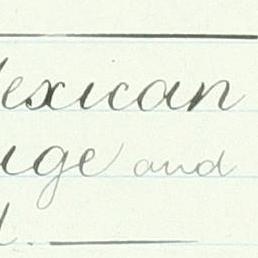 exican
ge and